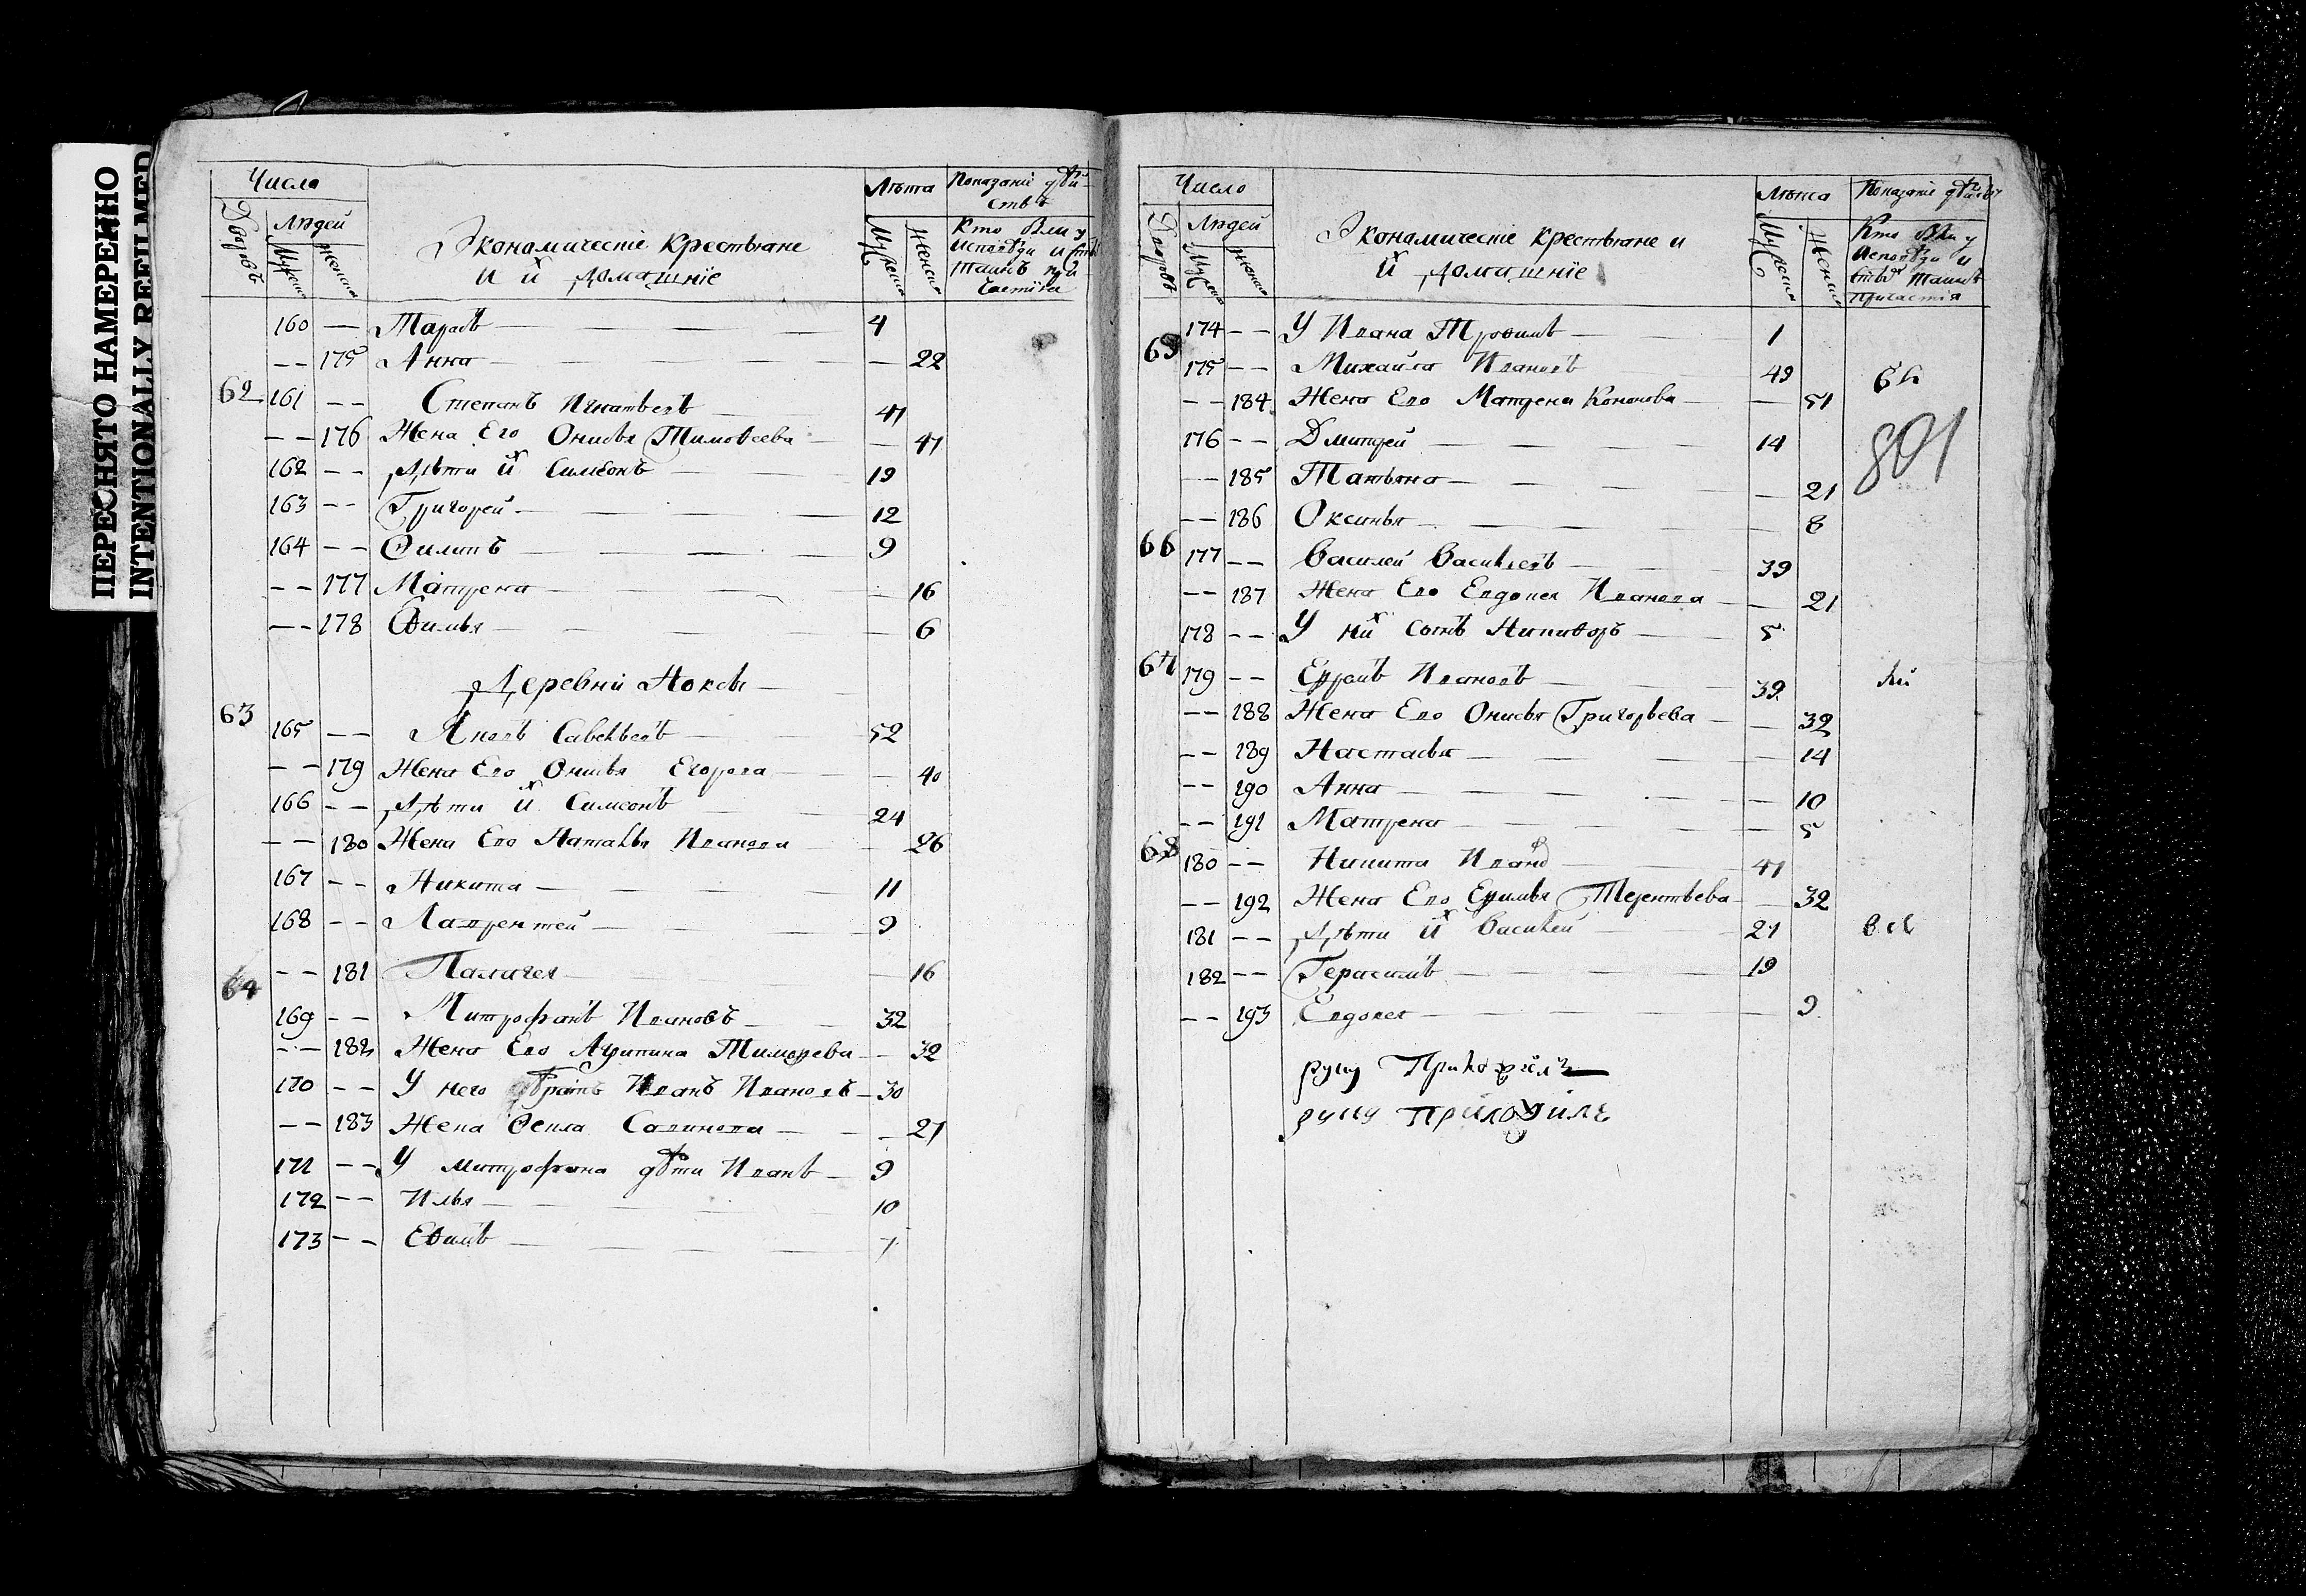 ПЕРЕСНЯТО НАМЕРЕННО
INTENTIONALLY REFILMED
Число
Дворовъ
Людей
Мужеска
Женска
Экономическіе крестьяне
и их домашніе
Лѣта
Мужеска
Женска
Показаніе дѣй-
ствъ
Кто был у
исповѣди и свт
таинъ при
частія
160 — Тарасъ — 4
— — 175 Анна — 22
62 161 — — Степанъ Игнатьевъ 47
— — 176 Жена Его Онисья Тимоѳеева — 47
162 — — Дѣти их Симеонъ 19
163 — — Григорей — 12
164 — — Ѳилипъ — 9
— — 177 Матрена — 16
— — 178 Ѳимья — 6
Деревни Ноксы —
63 165 — — Яковъ Савельевъ 52
— — 179 Жена Его Онисья Егорова — 40
166 — — Дѣти их Симеонъ 24
— — 180 Жена Его Наталья Иванова 26
167 — — Никита — 11
168 — — Лаврентей — 9
— — 181 Палагея — 16
64 169 — — Митрофанъ Ивановъ 32
— — 182 Жена Его Агрипина Тимофеева — 32
170 — — У него братъ Иванъ Ивановъ — 30
— — 183 Жена Ѳекла Савинова — 27
171 — — У митрофана дѣти Иванъ — 9
172 — — Илья — 10
173 — — Еѳимъ — 7
Число
Дворовъ
Людей
Мужеска
Женска
Экономическіе крестьяне и
их домашніе
Лѣта
Мужеска
Женска
Показаніе дѣйствъ
Кто был у
исповѣди и
свты таинъ
причастія
174 — — У Ивана Трофимъ — 1
65 175 — — Михайла Ивановъ 49
— — 184 Жена Его Матрена Кононова — 51
801
176 — — Дмитрей — 14
— — 185 Татьяна — 21
— — 186 Оксинья — 8
66 177 — — Василей Васильевъ — 39
— — 187 Жена Его Евдокея Иванова — 21
178 — — У них сынъ Никифоръ — 5
67 179 — — Ефремъ Ивановъ — 39
— — 188 Жена Его Онисья Григорьева — 32
— — 189 Настасья — 14
— — 190 Анна — 10
— — 191 Матрена — 5
68 180 — — Никита Иванов — 47
— — 192 Жена Его Ефимья Терентьева — 32
181 — — Дѣти их Василей 21
182 — — Герасимъ — 19
— — 193 Евдокея — 9
руку Приложилъ
руку приложилъ